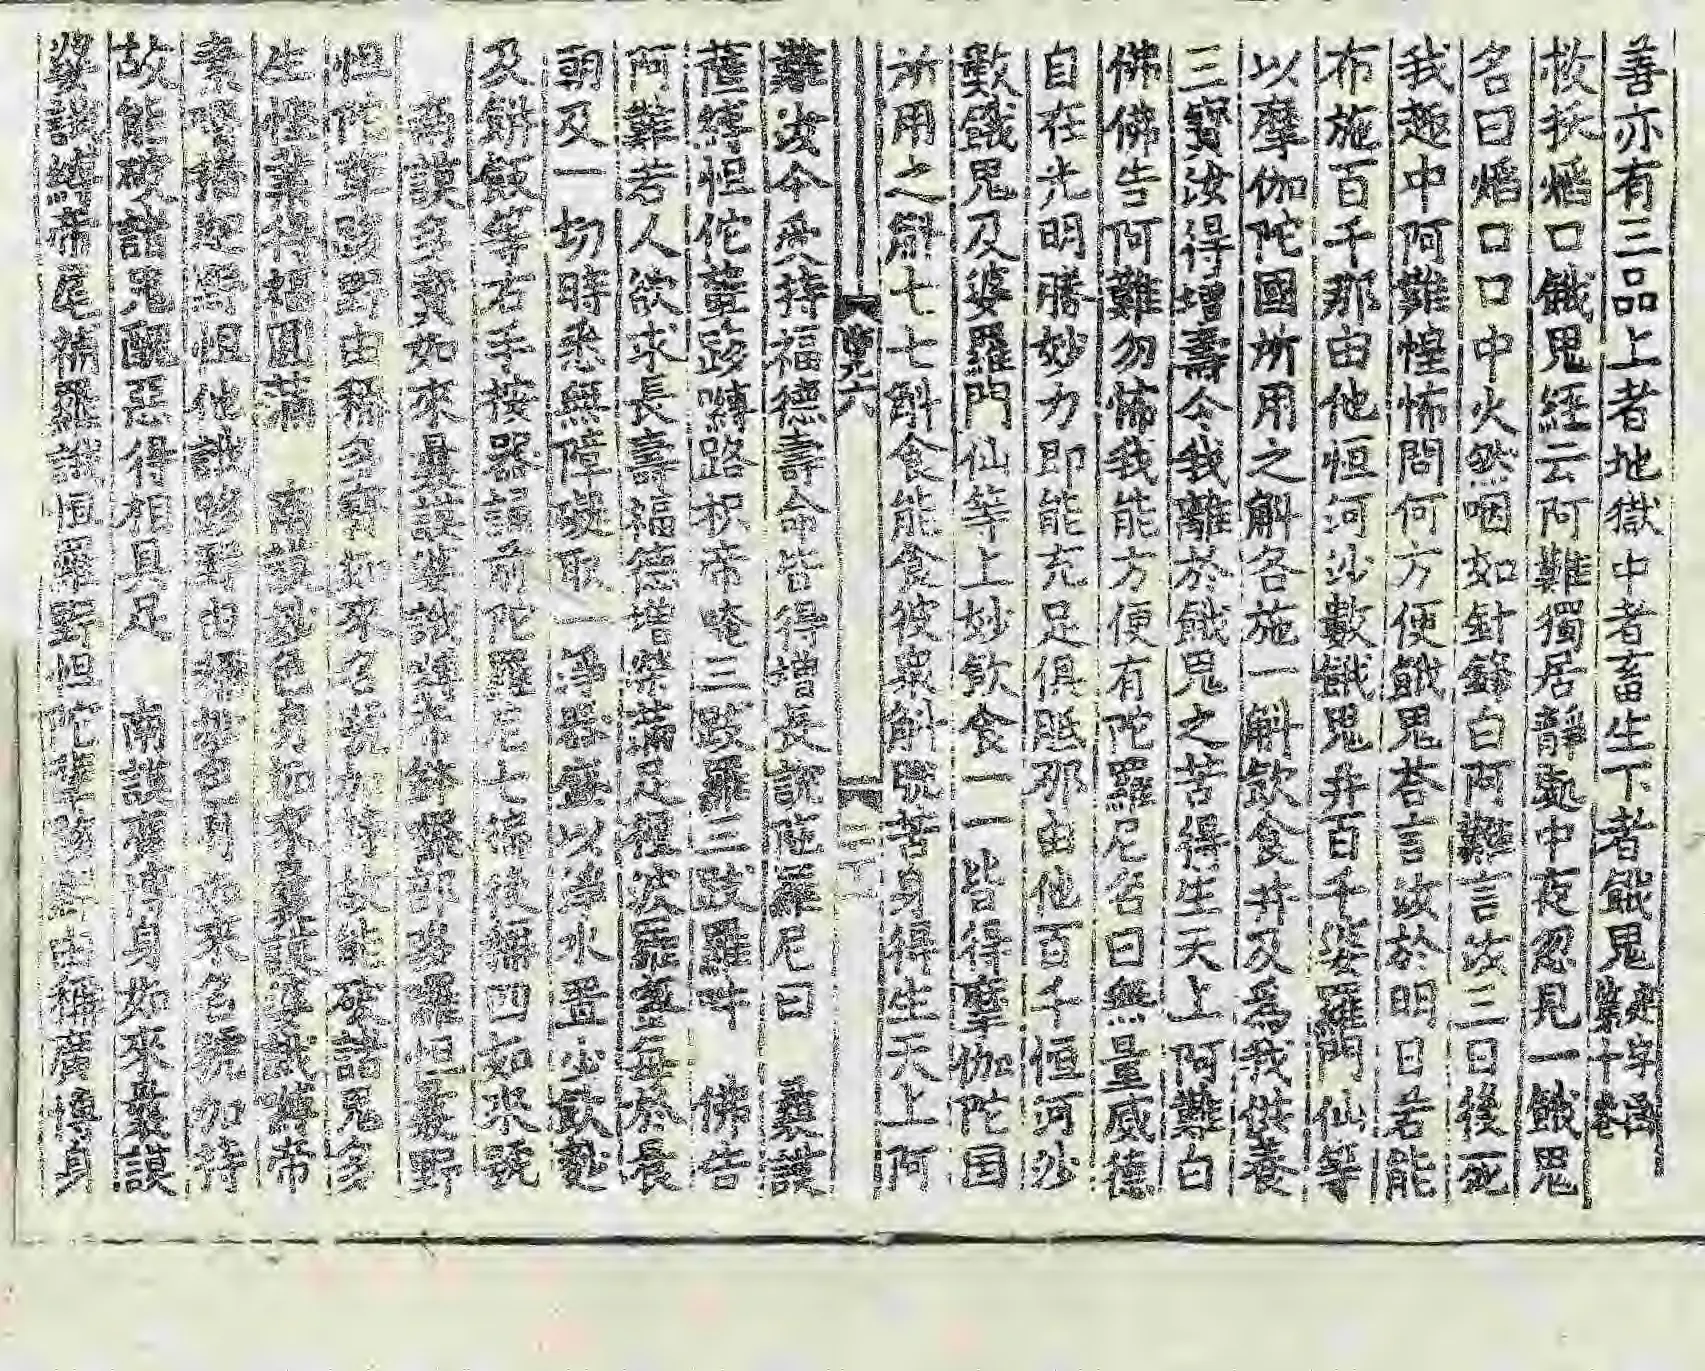 善亦有三品上者地獄中者畜生下者餓鬼
救拔熖口餓鬼經云阿難獨居靜處中夜忽見一餓鬼
名曰熖口口中火然咽如針鋒白阿難言汝三日後死
我趣中阿難惶怖問何方便餓鬼荅言汝於明日若能
布施百千那由他恒河沙數餓鬼井百千婆羅門仙等
以摩伽陀國所用之斛各施一斛飮食井及爲我供養
三寶汝得增壽令我離於餓鬼之苦得生天上阿難白
佛佛告阿難勿怖我能方便有陀羅尼名曰無量威德
自在光明勝妙力即能充足俱胝那由他百千恒河沙
數餓鬼及婆羅門仙等上妙飮食一一皆得摩伽陀国
所用之斛七七斛食能食彼衆斛脫苦身得生天上阿
難汝今受持福德壽命皆得增長說陁羅尼曰 曩謨
薩縛怛佗蘖路嚩路枳帝唵三跋羅三跋羅吽 佛告
阿難若人欲求長壽福德增榮滿足檀波羅蜜每於晨
朝及一切時悉無障礙取一淨器盛以淨水置少飯麨
及餠飯等右手按器誦前陀羅尼七徧後稱四如來號
南謨多寶如來曩謨婆誐嚩帝鉢囉部多羅怛曩野
怛陀蘖跢野由稱多寶如來名號加持故能破諸鬼多
生慳業得福圓滿 南謨妙色身如來曩謨婆誐嚩帝
素嚕播跢野怛他誐跢野由稱妙色身如來名號加持
故能破諸鬼醜惡得相具足 南謨廣博身如來曩謨
婆誐嚩帝尾補羅誐怛羅野怛陀蘖跢野由稱廣博身